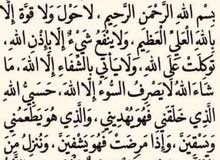 بِسْمِ اللّٰهِ الرَّحْمٰنِ الرَّحِيْمِ، لَا حَوْلَ وَلَا قُوَّةَ إِلَّا
بِاللّٰهِ الْعَلِيِّ الْعَظِيْمِ، وَلَا يَنْفَعُ شَيْءٌ إِلَّا بِإِذْنِ اللّٰهِ،
تَوَكَّلْتُ عَلَى اللّٰهِ، وَلَا يَأْتِي بِالشِّفَاءِ إِلَّا اللّٰهُ، مَا
شَاءَ اللّٰهُ لَا يَصْرِفُ السُّوْءَ إِلَّا اللّٰهُ، حَسْبِيَ اللّٰهُ
الَّذِي خَلَقَنِي فَهُوَ يَهْدِيْنِي، وَالَّذِي هُوَ يُطْعِمُنِي
وَيَسْقِيْنِ، وَإِذَا مَرِضْتُ فَهُوَ يَشْفِيْنِ، وَنُنَزِّلُ مِنَ